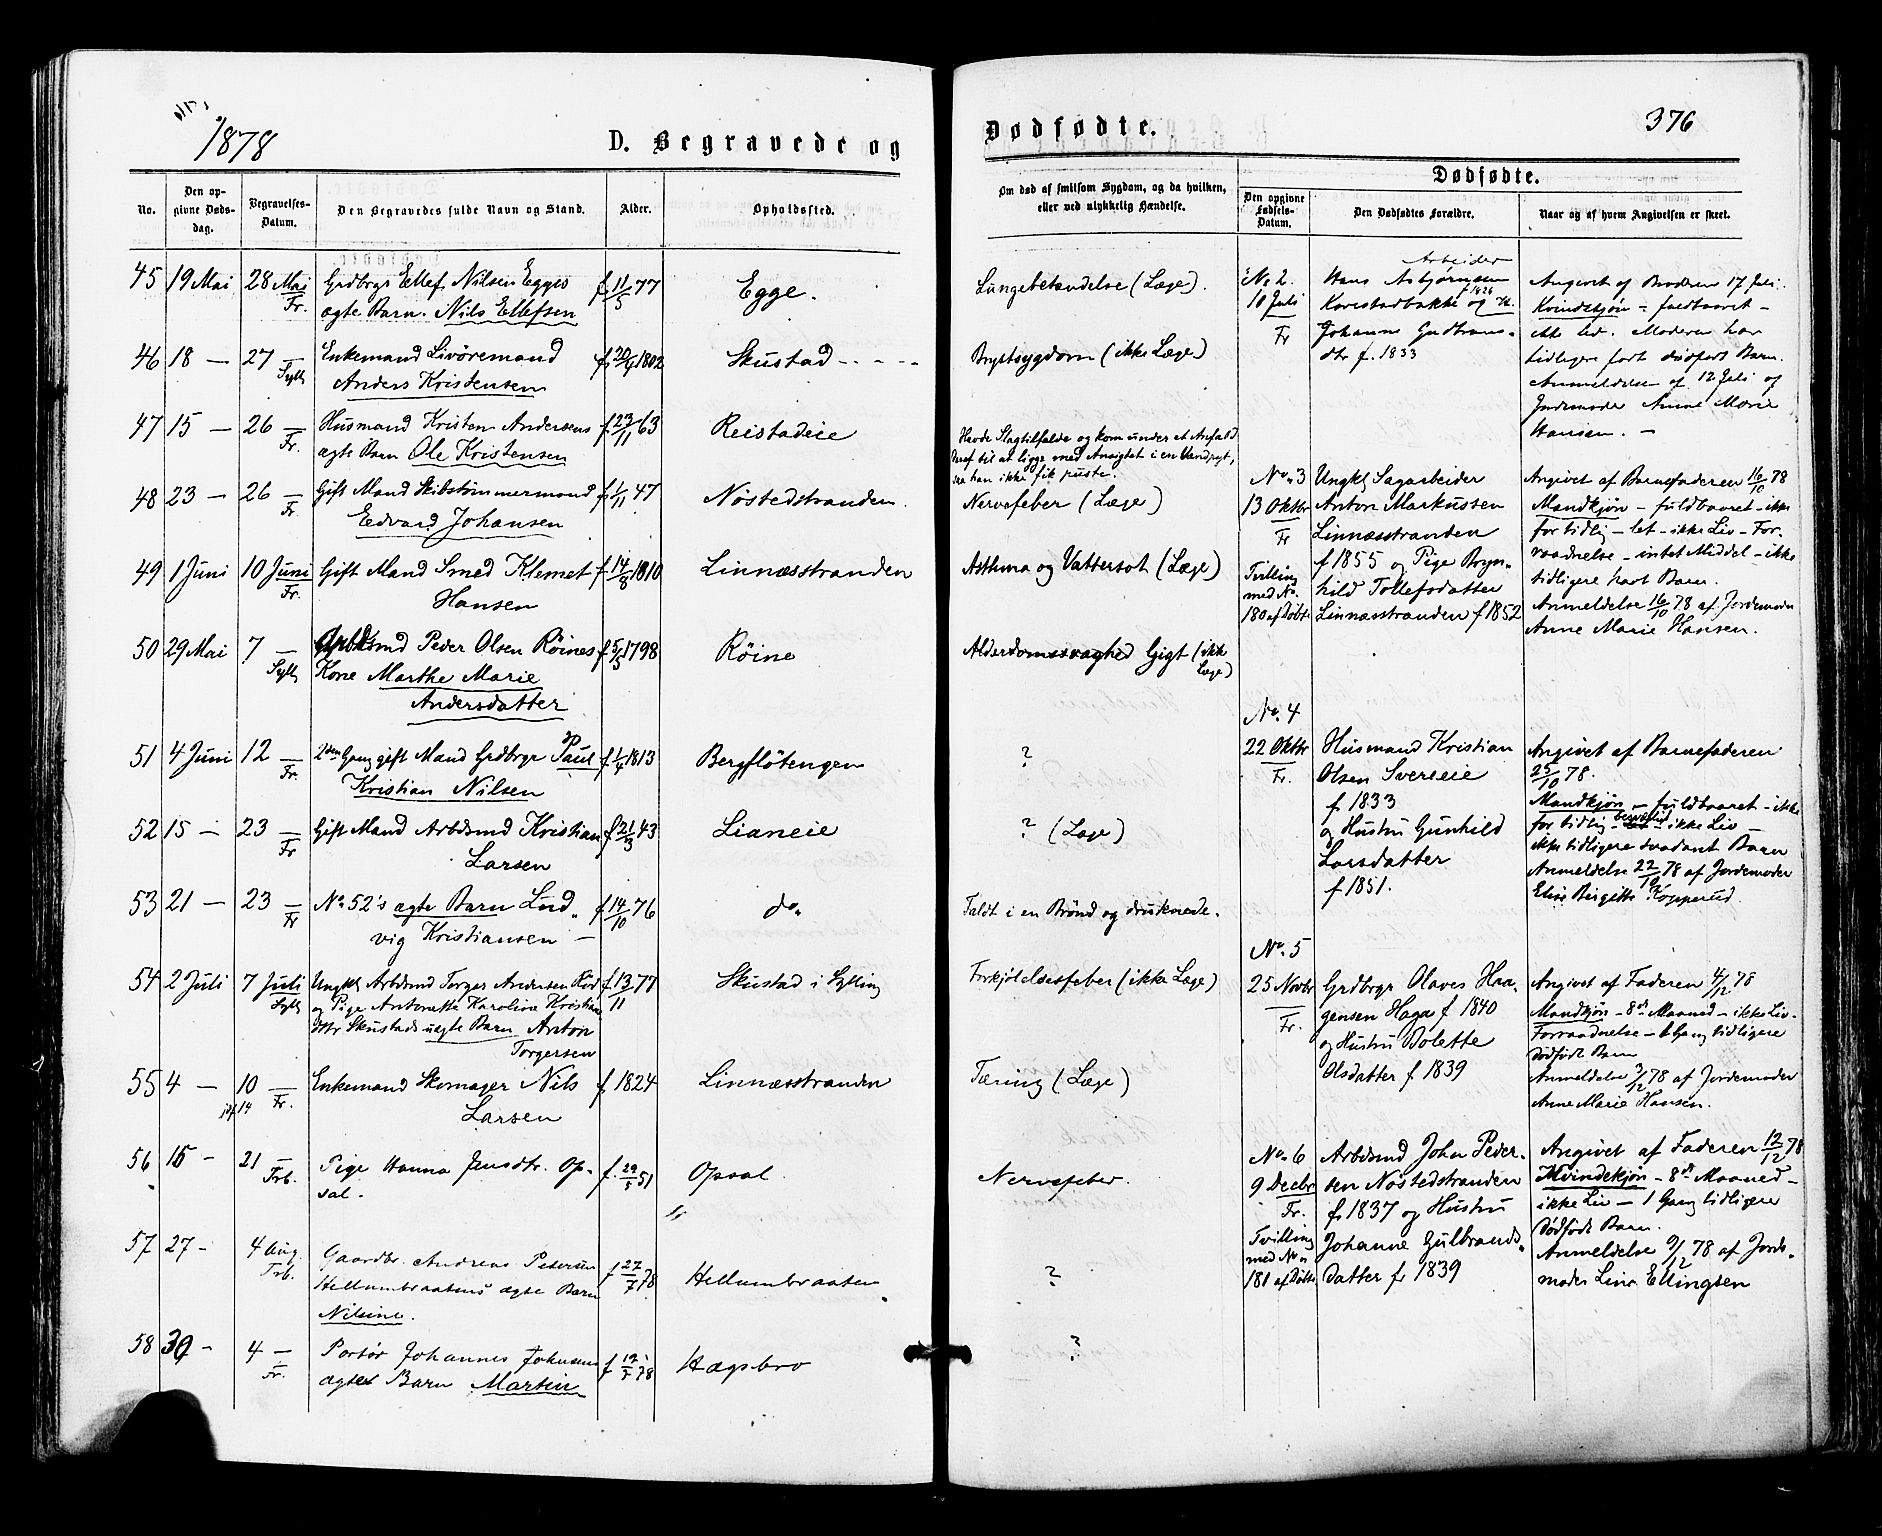 1878
D. Begravede og
Dødfødte.
376
No.
Den opgivne Dødsdag.
Begravelses-Datum.
Den Begravedes fulde Navn og Stand.
Alder.
Opholdssted.
Om død af smitsom Sygdom, og da hvilken,
eller ved ulykkelig Hændelse.
Dødfødte.
Den opgivne Fødsels-Datum.
Den Dødfødtes Forældre.
Naar og af hvem Angivelsen er skeet.
45 19 Mai 28 Mai Grdbrgr Ellef Nilsen Egges f 11/5 77 Egge. Lungebetændelse (Læge).
Fr. ægte Barn. Nils Ellefsen
46 18 — 27 — Enkemand Livøremand f 20/9 1802 Skustad - - - - Brystsygdom (ikke Læge)
Sylls Anders Kristensen
47 15 — 26 — Husmand Kristen Andersens f 23/11 63 Reistadeie Havde Slagtilfælde og kom under et Anfald
Fr. ægte Barn Ole Kristensen til at ligge med Ansigtet i en Vandpyt,
saa han ikke fik puste.
48 23 — 26 — Gift Mand Skibstømmermand f 1/11 47 Nøstedstranden. Nervefeber (Læge)
Fr. Eedvard Johansen
49 1 Juni 10 Juni Gift Mand Smed Klemet f 14/8 1810 Linnæsstranden Asthma og Vattersot (Læge)
Fr. Hansen
50 29 Mai 7 — Peder Olsen Røines f 5/5 1798 Røine Alderdomssvaghed Gigt (ikke
Sylls Kone Marthe Marie Læge)
Andersdatter
51 4 Juni 12 — 2den Gang gift Mand Grdbrgr Paul f 1/4 1813 Bergfløtengen ?
Fr. Kristian Nilsen
52 15 — 23 — Gift Mand Arbdsmd Kristian f 21/3 43 Lianeie ? (Læge)
Fr Larsen
53 21 — 23 — No 52's ægte Barn Lud„ f 14/10 76 do„ Faldt i en Brønd og druknede.
Fr vig Kristiansen —
54 2 Juli 7 Juli Ungkl Arbdsmd Torger Andersen f 13/11 77 Skustad i Sylling Forkjølelsesfeber (ikke Læge)
Sylls og Pige Antonette Karoline Kristian
dttr Skustads uægte Barn Anton
Torgersen
55 4 — 10 — Enkemand Skomager Nils f 1824 Linnæsstranden Tæring (Læge)
14 Fr. Larsen
56 15 - 21 — Pige Hanna Jensdtr. Op- f. 29/5 51 Opsal Nervefeber.
Frb. sal.
57 27 - 4 Aug. Gaardbr. Andreas Petersen f 27/7 78 Hellumbraaten ?
Frb. Hellumbraatens ægte Barn
Nilsine.
58 30 - 4 — Portør Johannes Johnsens f 19/7 78 Hægsbro ?
Fr. ægte Barn Martin
No 2.
10 Juli
Fr
Arbeider
Hans Asbjørnsen
f 1826
Korestadbakke og H.
Johanne Gudbrans-
dtr f. 1833
Angivet af Broderen 17 Juli.
Kvindekjøn - fuldbaaret -
ikke led. Moderen har
tidligere født dødfødt Barn.
Anmeldelse af 12 Juli af
Jordemoder Anne Marie
Hansen. -
No. 3
13 Oktbr
Fr
Tvilling
med No.
180 af Døbte
Ungkl Sagarbeider
Anton Markussen
Linnæsstranden
f 1855 og Pige Bryn-
hild Tollefsdatter
Linnæsstranden f 1852
Angivet af Barnefaderen 16/10 78
Mandkjøn - fuldbaaret - ikke
for tidlig - let - ikke Liv - For-
raadnelse - intet Middel - ikke
tidligere havt Barn.
Anmeldelse 16/10 78 af Jordemoder
Anne Marie Hansen.
No. 4
22 Oktbr
Fr.
Husmand Kristian
Olsen Svereeie
f 1833
og Hustru Gunhild
Larsdatter
f 1851.
Angivet af Barnefaderen
25/10 78.
Mandkjøn - fuldbaaret - ikke
for tidlig - besværlig - ikke Liv -
ikke tidligere saadant Barn
Anmeldelse 22/10 78 af Jordemoder
Elise Birgitte Kopperud.
No. 5
25 Novbr
Fr.
Grdbrgr Olaves Haa-
gensen Haga f 1840
og Hustru Bolette
Olsdatter f 1839
Angivet af Faderen 4/12 78
Mandkjøn - 8de Maaned - ikke Liv-
Forraadnelse - 1 Gang tidligere
Dødfødt Barn
Anmeldelse 3/12 78 af Jordemoder
Anne Marie Hansen.
No. 6
9 Decbr
Fr.
Tvilling
med No
181 af Døbte
Arbdsmd John Peder-
sen Nøstedstranden
f. 1837 og Hustru
Johanne Gulbrands-
datter f. 1839
Angivet af Faderen 12/12 78
Kvindekjøn - 8de Maaned -
ikke Liv - 1 Gang tidligere
Dødfødt Barn.
Anmeldelse 9/12 78 af Jorde-
moder Line Ellingsen